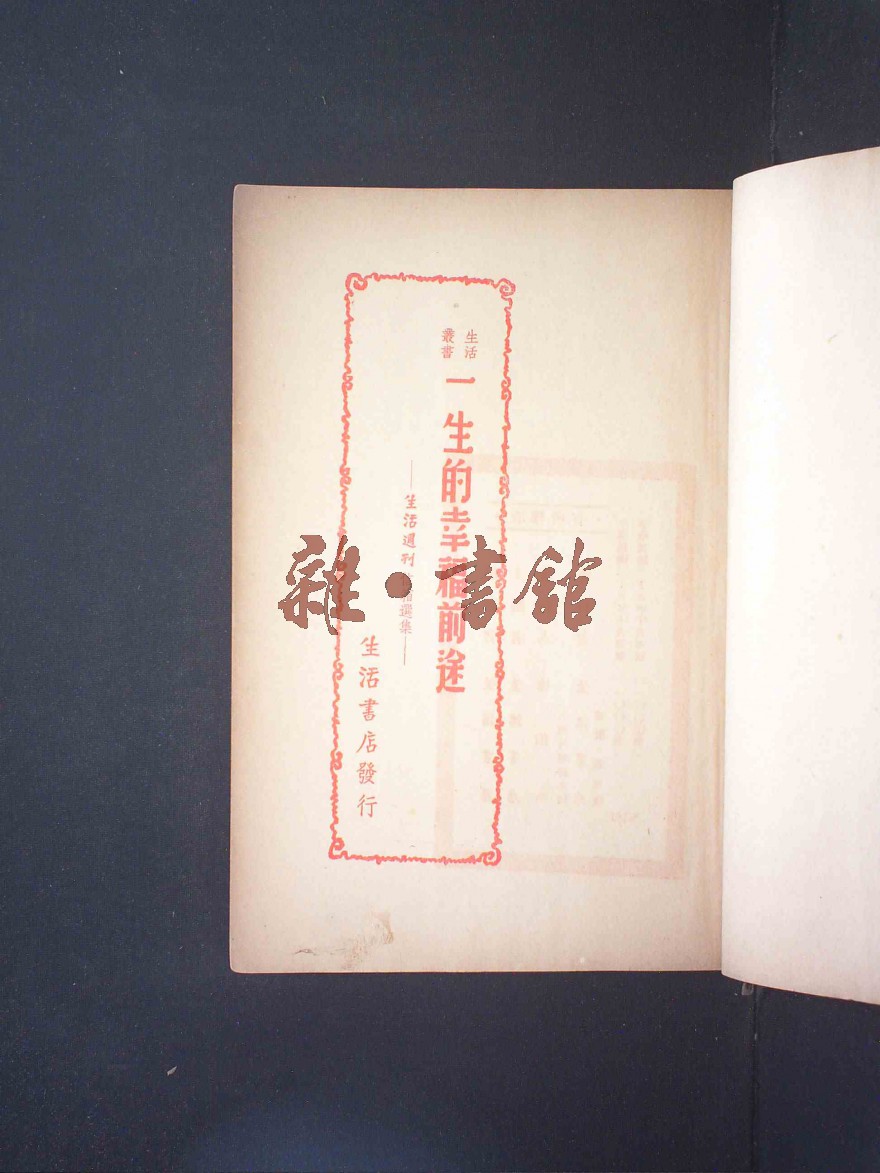 生活
叢書
一生的幸福前途
——生活週刊 選集——
生活書店發行
雜·書館